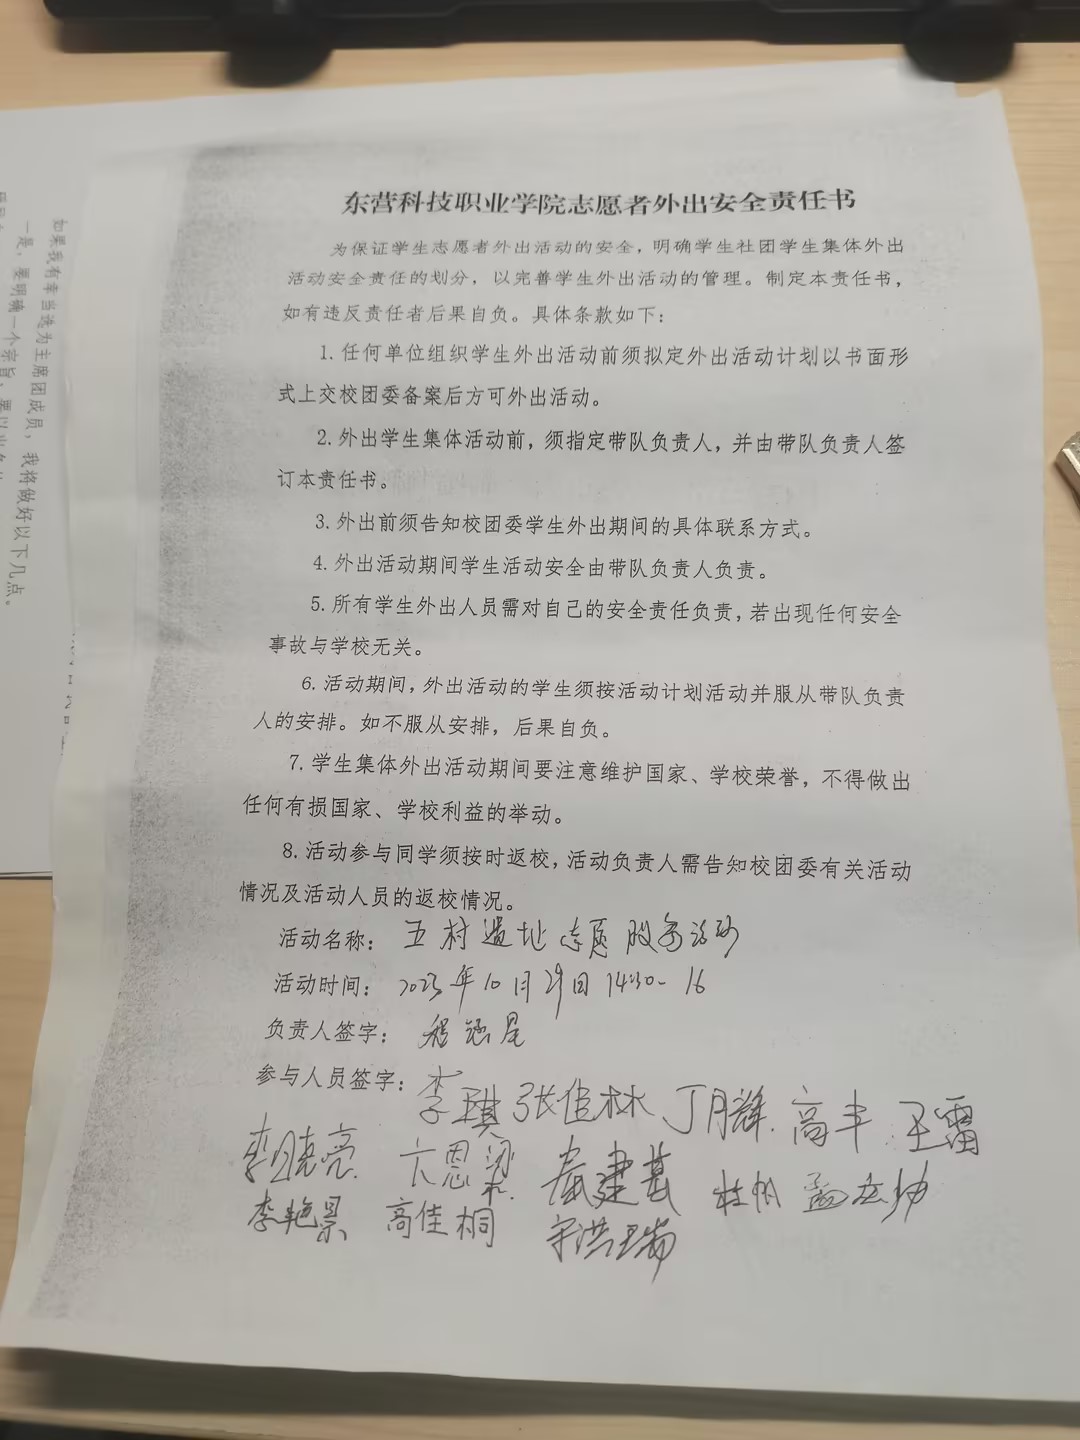 东营科技职业学院志愿者外出安全责任书
为保证学生志愿者外出活动的安全，明确学生社团学生集体外出
活动安全责任的划分，以完善学生外出活动的管理。制定本责任书，
如有违反责任者后果自负。具体条款如下：
1.任何单位组织学生外出活动前须拟定外出活动计划以书面形
式上交校团委备案后方可外出活动。
2.外出学生集体活动前，须指定带队负责人，并由带队负责人签
订本责任书。
3.外出前须告知校团委学生外出期间的具体联系方式。
4.外出活动期间学生活动安全由带队负责人负责。
5.所有学生外出人员需对自己的安全责任负责，若出现任何安全
事故与学校无关。
6.活动期间，外出活动的学生须按活动计划活动并服从带队负责
人的安排。如不服从安排，后果自负。
7.学生集体外出活动期间要注意维护国家、学校荣誉，不得做出
任何有损国家、学校利益的举动。
8.活动参与同学须按时返校，活动负责人需告知校团委有关活动
情况及活动人员的返校情况。
活动名称：五村遗址志愿服务活动
活动时间：2023年10月29日14:30-16
负责人签字：
参与人员签字：李琪 丁月辉 高丰 王雷
李晓亮 秦建基 杜帆
李艳景 高佳桐
如果我有幸当选为主席团成员，我将做好以下几点。
一是，要明确一个宗旨，